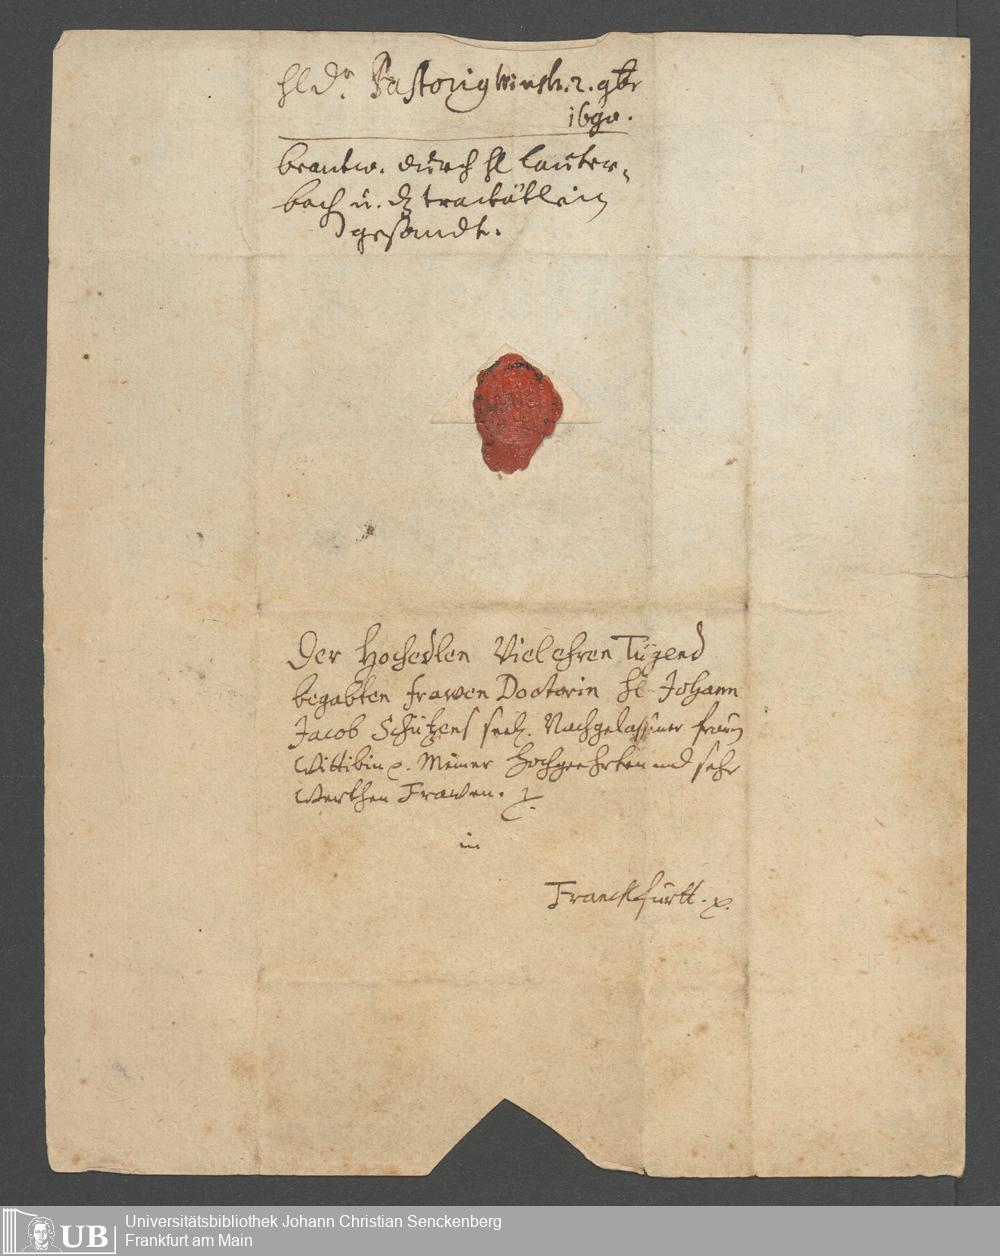 Hl Dr. Pastorig Winsh. 2. 9br
1690.
beantw. durch Hl Lauter-
bach u. dz tractätlein
gesandt.
Der HochEdlen Viel Ehren Tugend
begabten Frawen Doctorin Hl. Johann
Jacob Schützens seel. Nachgelaßener Fraw
Wittibin p. Meiner Hochgeehrten und sehr
Werthen Frawen. p.
in
Franckfurtt. p.
UB
Universitätsbibliothek Johann Christian Senckenberg
Frankfurt am Main